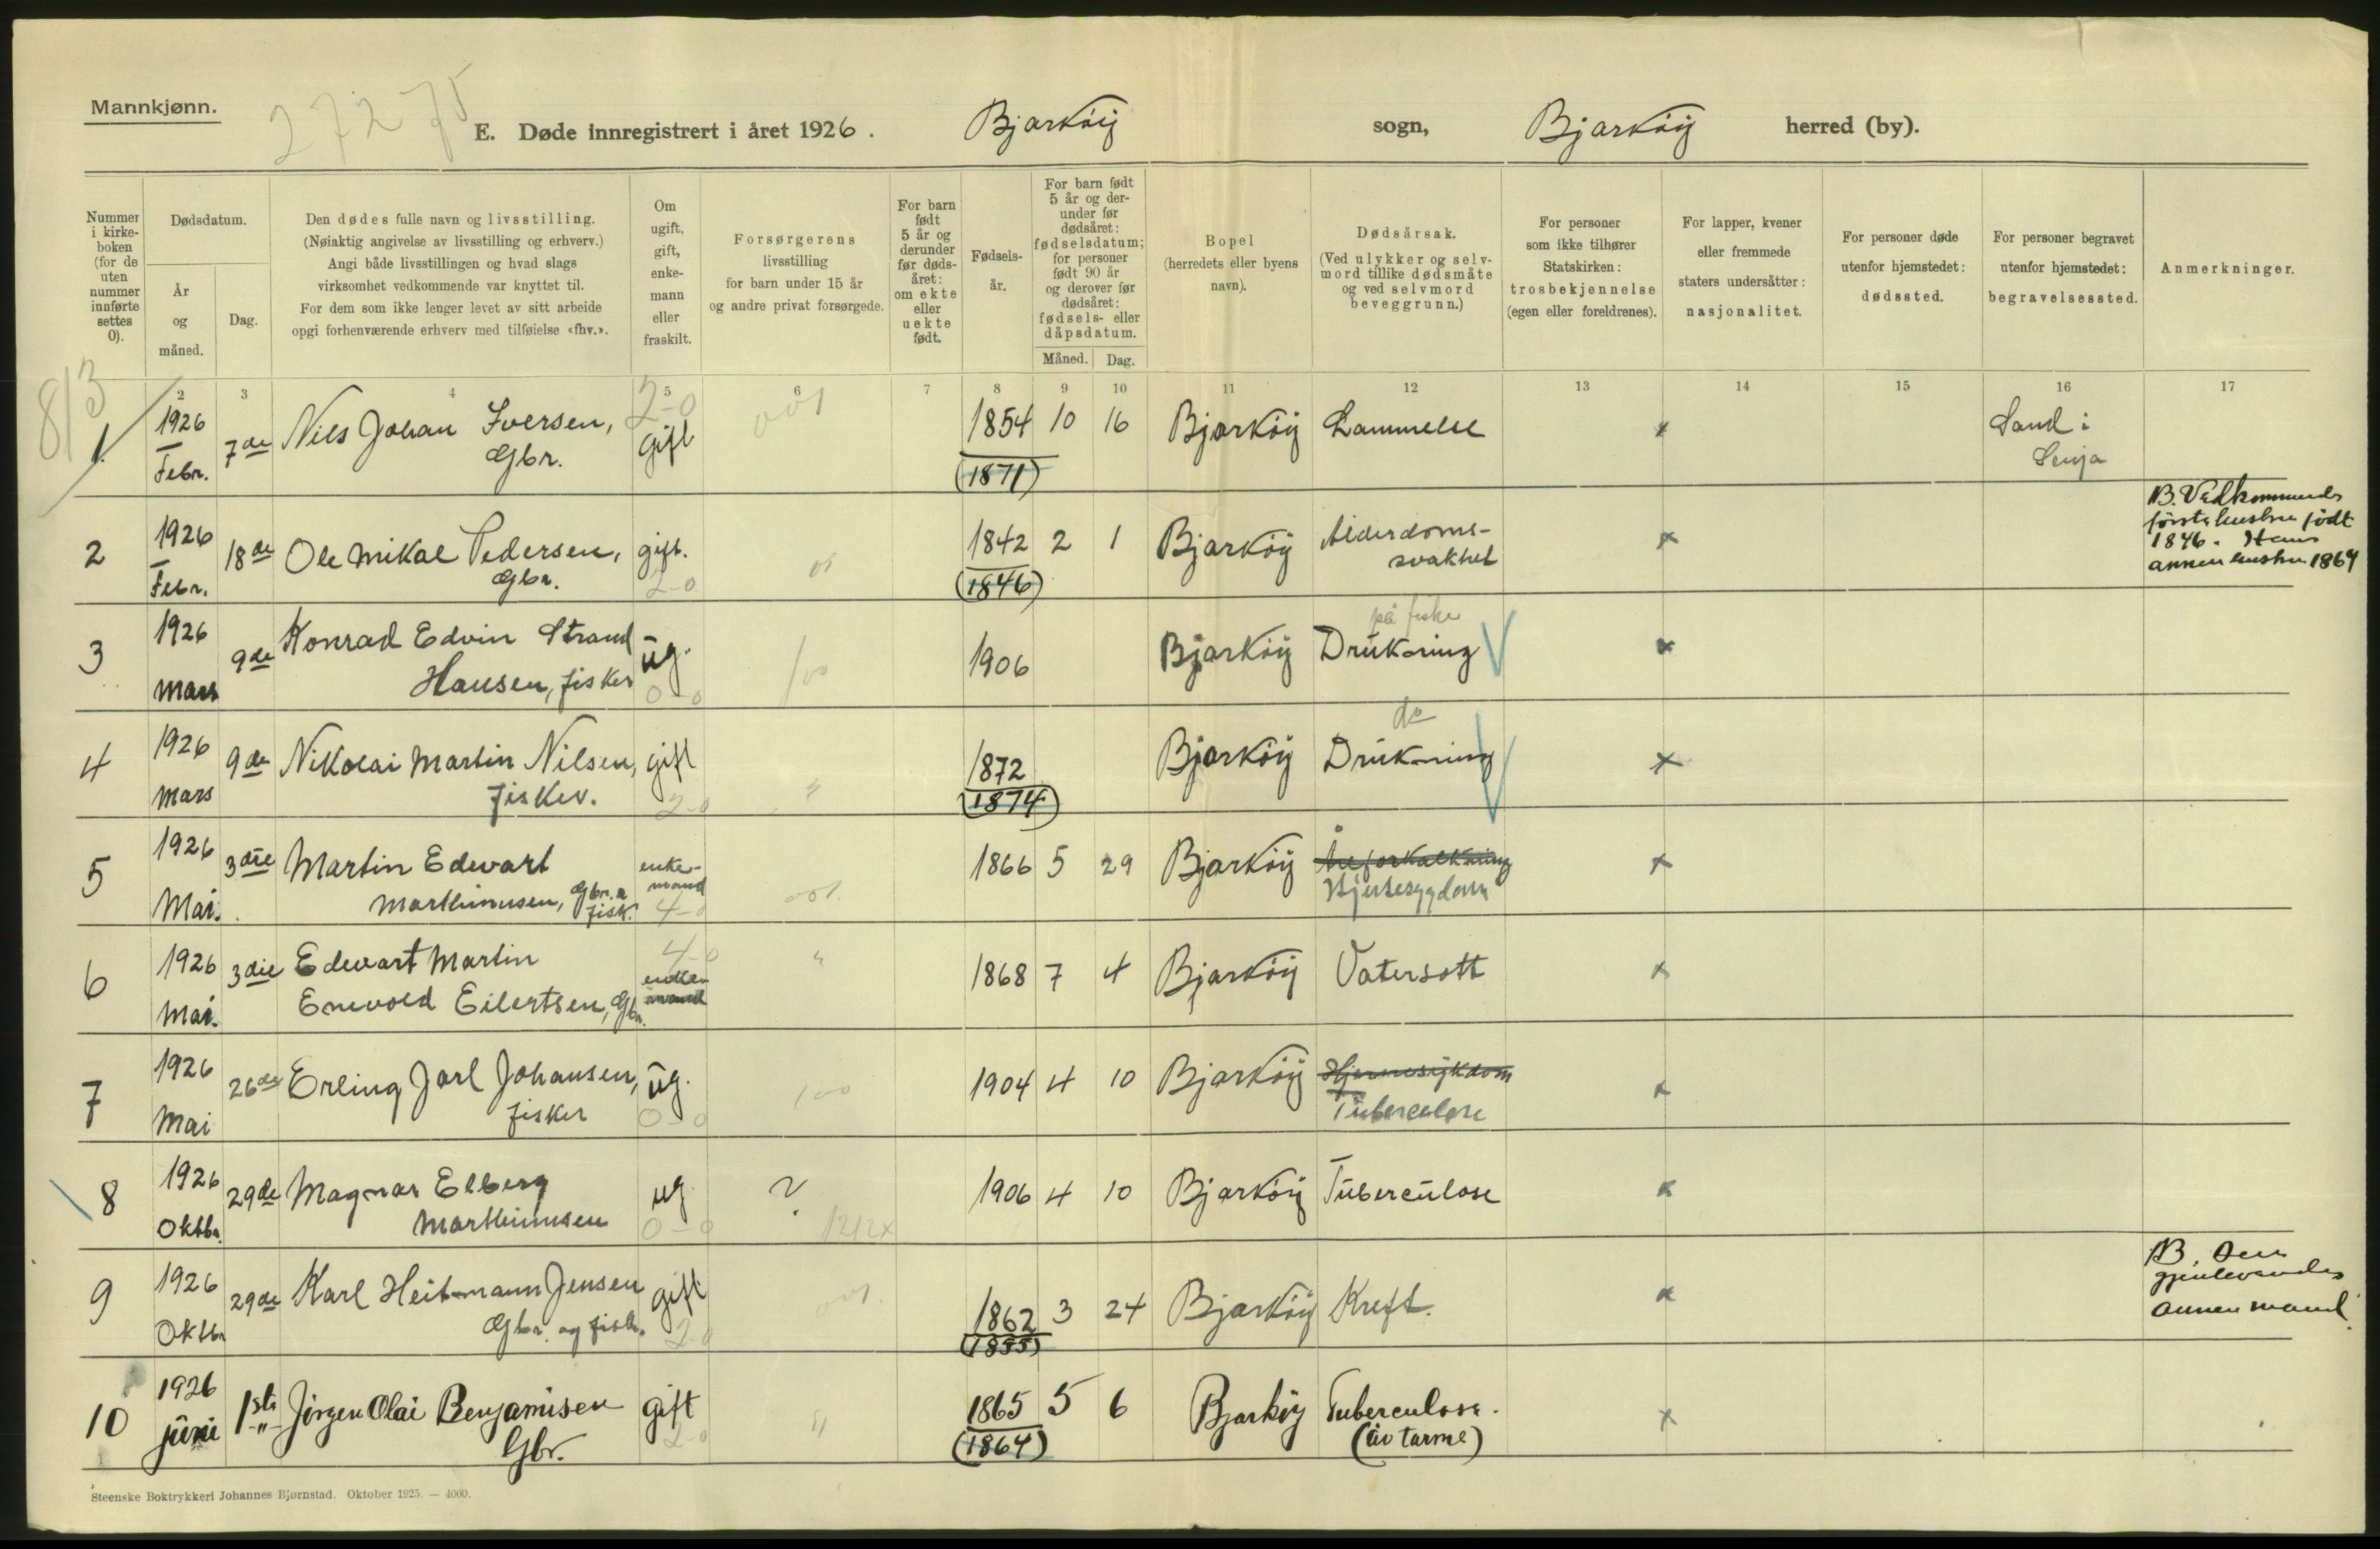 Mannkjønn.
27275
E. Døde innregistrert i året 1926. Bjarköy sogn, Bjarköy herred (by).
Nummer i kirke-boken (for de uten nummer innførte settes 0).
Dødsdatum.
År og måned.
Dag.
Den dødes fulle navn og livsstilling.
(Nøiaktig angivelse av livsstilling og erhverv.)
Angi både livsstillingen og hvad slags
virksomhet vedkommende var knyttet til.
For dem som ikke lenger levet av sitt arbeide
opgi forhenværende erhverv med tilføielse «fhv.».
Om ugift, gift, enke-mann eller fraskilt.
Forsørgerens
livsstilling
for barn under 15 år
og andre privat forsørgede.
For barn født 5 år og derunder før døds-året: om ekte eller uekte født.
Fødsels-år.
For barn født 5 år og der-under før dødsåret: fødselsdatum; for personer født 90 år og derover før dødsåret: fødsels- eller dåpsdatum.
Måned. Dag.
Bopel
(herredets eller byens
navn).
Dødsårsak.
(Ved ulykker og selv-
mord tillike dødsmåte
og ved selvmord
beveggrunn.)
For personer
som ikke tilhører
Statskirken:
trosbekjennelse
(egen eller foreldrenes).
For lapper, kvener
eller fremmede
staters undersåtter:
nasjonalitet.
For personer døde
utenfor hjemstedet:
dødssted.
For personer begravet
utenfor hjemstedet:
begravelsessted.
Anmerkninger.
2 3 4 5 6 7 8 9 10 11 12 13 14 15 16 17
813
1. 1926 Febr. 7de Nils Johan Iversen, Gbr. 2-0 gift 001 1854 (1871) 10 16 Bjarköy Lammelse x Sand i Senja
2 1926 Febr. 18de Ole Mikal Pedersen, Gbr. gift. 2-0 1842 (1846) 2 1 Bjarköy Alderdoms-svakhet x B. Vedkommendes første hustru født 1846. Hans annen hustru 1864
3 1926 Mars 9de Konrad Edvin Strand Hansen, fisker ug. 0-0 100 1906 Bjarköy på fiske Drukning x
4 1926 Mars 9de Nikolai Martin Nilsen, fisker. gift 2-0 " 1872 (1874) Bjarköy do Drukning x
5 1926 Mai. 3die Martin Edevart Marthinusen, Gbr. & fisk. enke-mand 4-0 001. 1866 5 29 Bjarköy Åreforkalkning Hjertesygdom x
6 1926 Mai. 3die Edevart Martin Enevold Eilertsen, Gbr. 4-0 enke-mand " 1868 7 4 Bjarköy Vatersott x
7 1926 Mai 26de Erling Jarl Johansen, fisker ug. 0-0 100 1904 4 10 Bjarköy Hjernesykdom Tuberculose x
8 1926 Oktbr. 29de Magnar Elberg Marthinusen ug 0-0 ? 1212x 1906 4 10 Bjarköy Tuberculose x
9 1926 Oktbr 29de Karl Heitmann Jensen Gbr. og fisk. gift 2-0 001. 1862 (1855) 3 24 Bjarköy Kreft. x B. Den gjenlevendes annen mand.
10 1926 juni 1ste Jörgen Olai Benjaminsen Gbr. gift 2-0 " 1865 (1864) 5 6 Bjarköy Tuberculose. (av tarme) x
Steenske Boktrykkeri Johannes Bjørnstad. Oktober 1925. — 4000.